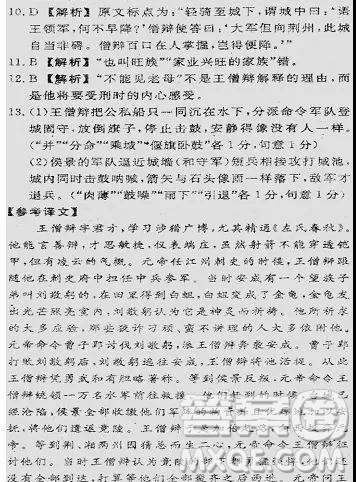 10. D 【解析】 原文标点为:“轻骑至城下,谓城中曰:‘语
王领军,何不早降?’僧辩使答曰:‘大军但向荆州,此城
自当非碍。僧辩百口在人掌握,岂得便降。’”
11. B 【解析】 “也叫旺族”“家业兴旺的家族”错。
12. B 【解析】 “不能见老母”不是王僧辩解释的理由,而
是他将要受刑时的内心感受。
13. (1)王僧辩把公私船只一同沉在水下,分派命令军队登
城固守,放倒旗子,停止击鼓,安静得像没有人一样。
(“并”“分命”“乘城”“偃旗卧鼓”各1分,句意1分)
(2)侯景的军队逼近城墙(和守军)短兵相接攻打城池,
城内同时击鼓呐喊,箭矢与石头像雨一样落下,敌军才
退兵。(“肉薄”“鼓噪”“雨下”“引退”各1分,句意1分)
【参考译文】
王僧辩字君才,学习涉猎广博,尤其精通《左氏春秋》。
他能言善辩,才思敏捷,仪表端庄,虽然射箭不能穿透铠
甲,但有凌云的气概。元帝任江州刺史的时候,王僧辩跟
随他在刺史府中担任中兵参军。当时安成有一个望族子
弟叫刘敬躬的,在田里得到白蛆,白蛆变成了金龟,金龟发
出光芒照亮室内,刘敬躬认为它是神灵而祈祷。他所祈求
的大多应验,那些狡诈刁顽、蛮不讲理的人大多依附他。
元帝命令曹子郢讨伐刘敬躬,派王僧辩奔袭安成。曹子郢
打败刘敬躬后,刘敬躬逃往安成,王僧辩将他活捉。从此
王僧辩凭勇武和有胆略著称。等到侯景反叛,元帝命令王
僧辩统领一万名水军前往救援
经沦陷,侯景全部收缴他们军
抚,将他们遣返竟陵。
帝。等到荆、湘两州因猜忌而生二心,元帝命令王僧辩征
讨他们。当时王僧辩认为竟陵
没有全部到达,打算等他们全部聚齐之后再进。元帝问王